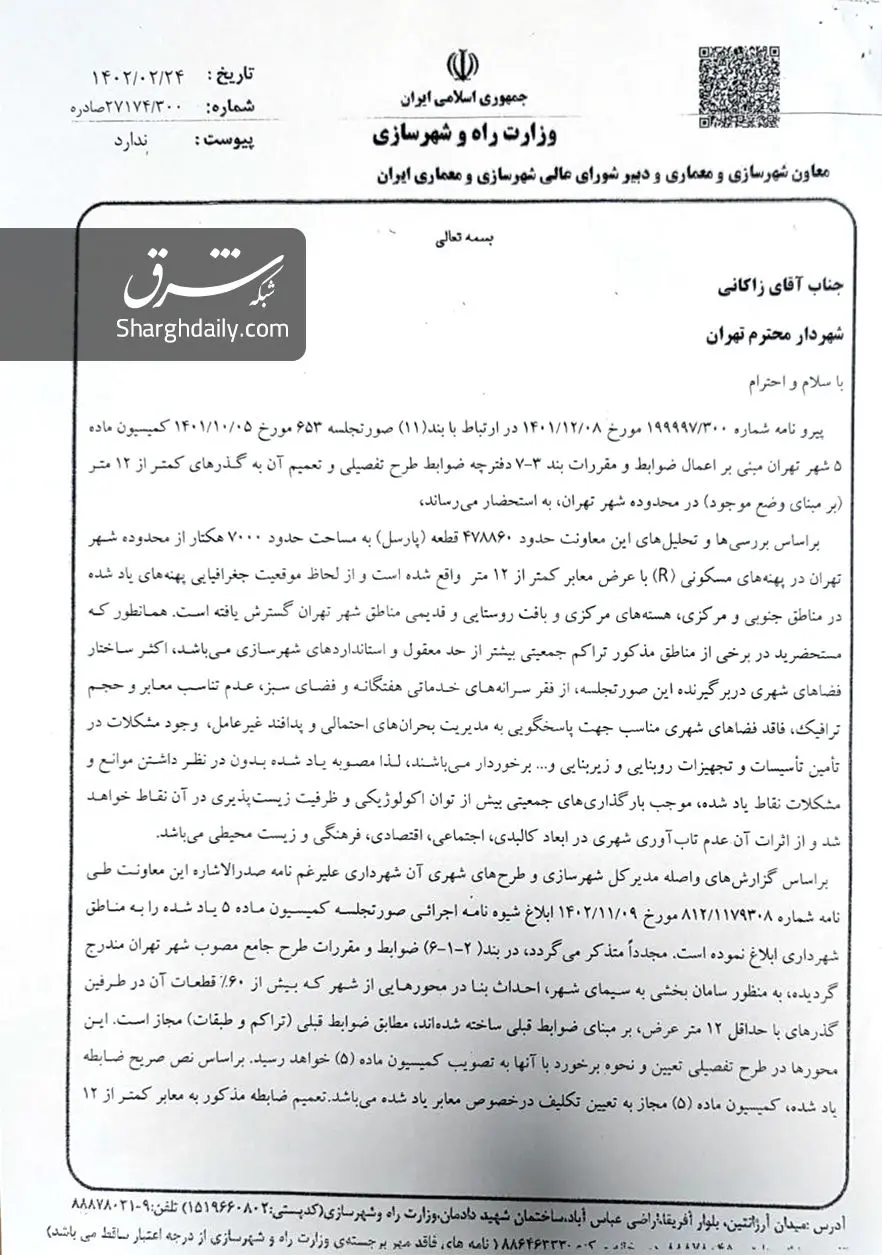 تاریخ: ۱۴۰۲/۰۲/۲۴
شماره: ۲۷۱۷۴/۳۰۰صادره
پیوست: ندارد
جمهوری اسلامی ایران
وزارت راه و شهرسازی
معاون شهرسازی و معماری و دبیر شورای عالی شهرسازی و معماری ایران
بسمه تعالی
شبکه شرق
Sharghdaily.com
جناب آقای زاکانی
شهردار محترم تهران
با سلام و احترام
پیرو نامه شماره ۱۹۹۹۹۷/۳۰۰ مورخ ۱۴۰۱/۱۲/۰۸ در ارتباط با بند(۱۱) صورتجلسه ۶۵۳ مورخ ۱۴۰۱/۱۰/۰۵ کمیسیون ماده
۵ شهر تهران مبنی بر اعمال ضوابط و مقررات بند ۳-۷ دفترچه ضوابط طرح تفصیلی و تعمیم آن به گذرهای کمتر از ۱۲ متر
(بر مبنای وضع موجود) در محدوده شهر تهران، به استحضار می‌رساند،
براساس بررسی‌ها و تحلیل‌های این معاونت حدود ۴۷۸۸۶۰ قطعه (پارسل) به مساحت حدود ۷۰۰۰ هکتار از محدوده شهر
تهران در پهنه‌های مسکونی (R) با عرض معابر کمتر از ۱۲ متر واقع شده است و از لحاظ موقعیت جغرافیایی پهنه‌های یاد شده
در مناطق جنوبی و مرکزی، هسته‌های مرکزی و بافت روستایی و قدیمی مناطق شهر تهران گسترش یافته است. همانطور که
مستحضرید در برخی از مناطق مذکور تراکم جمعیتی بیشتر از حد معقول و استانداردهای شهرسازی می‌باشد، اکثر ساختار
فضاهای شهری دربرگیرنده این صورتجلسه، از فقر سرانه‌های خدماتی هفتگانه و فضای سبز، عدم تناسب معابر و حجم
ترافیک، فاقد فضاهای شهری مناسب جهت پاسخگویی به مدیریت بحران‌های احتمالی و پدافند غیرعامل، وجود مشکلات در
تأمین تأسیسات و تجهیزات روبنایی و زیربنایی و... برخوردار می‌باشند، لذا مصوبه یاد شده بدون در نظر داشتن موانع و
مشکلات نقاط یاد شده، موجب بارگذاری‌های جمعیتی بیش از توان اکولوژیکی و ظرفیت زیست‌پذیری در آن نقاط خواهد
شد و از اثرات آن عدم تاب‌آوری شهری در ابعاد کالبدی، اجتماعی، اقتصادی، فرهنگی و زیست محیطی می‌باشد.
براساس گزارش‌های واصله مدیرکل شهرسازی و طرح‌های شهری آن شهرداری علیرغم نامه صدرالاشاره این معاونت طی
نامه شماره ۸۱۲/۱۱۷۹۳۰۸ مورخ ۱۴۰۲/۱۱/۰۹ ابلاغ شیوه نامه اجرائی صورتجلسه کمیسیون ماده ۵ یاد شده را به مناطق
شهرداری ابلاغ نموده است. مجدداً متذکر می‌گردد، در بند( ۲-۱-۶) ضوابط و مقررات طرح جامع مصوب شهر تهران مندرج
گردیده، به منظور سامان بخشی به سیمای شهر، احداث بنا در محورهایی از شهر که بیش از ۶۰٪ قطعات آن در طرفین
گذرهای با حداقل ۱۲ متر عرض، بر مبنای ضوابط قبلی ساخته شده‌اند، مطابق ضوابط قبلی (تراکم و طبقات) مجاز است. این
محورها در طرح تفصیلی تعیین و نحوه برخورد با آنها به تصویب کمیسیون ماده (۵) خواهد رسید. براساس نص صریح ضابطه
یاد شده، کمیسیون ماده (۵) مجاز به تعیین تکلیف درخصوص معابر یاد شده می‌باشد.تعمیم ضابطه مذکور به معابر کمتر از ۱۲
آدرس :میدان آرژانتین، بلوار آفریقا،اراضی عباس آباد،ساختمان شهید دادمان،وزارت راه وشهرسازی(کدپستی:۱۵۱۹۶۶۰۸۰۲) تلفن:۹-۸۸۸۷۸۰۳۱
۸۸۶۴۶۳۳۳۰( نامه های فاقد مهر برجسته‌ی وزارت راه و شهرسازی از درجه اعتبار ساقط می باشد)